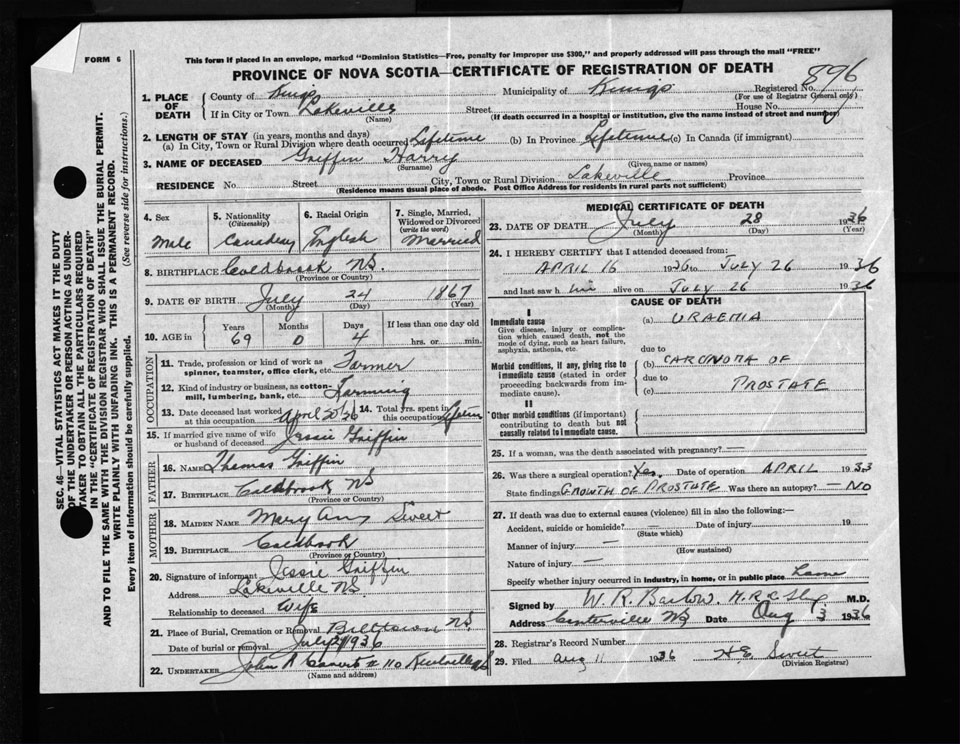 FORM 6
This form if placed in an envelope, marked "Dominion Statistics—Free, penalty for improper use $300," and properly addressed will pass through the mail "FREE"
PROVINCE OF NOVA SCOTIA—CERTIFICATE OF REGISTRATION OF DEATH
896
1. PLACE OF DEATH County of Kings Municipality of Kings Registered No. (For use of Registrar General only)
If in City or Town Lakeville (Name) Street House No.
(If death occurred in a hospital or institution, give the name instead of street and number)
2. LENGTH OF STAY (in years, months and days)
(a) In City, Town or Rural Division where death occurred Lifetime (b) In Province Lifetime (c) In Canada (if immigrant)
3. NAME OF DECEASED Griffin Harry
(Surname) (Given name or names)
RESIDENCE No. Street City, Town or Rural Division Lakeville Province
(Residence means usual place of abode. Post Office Address for residents in rural parts not sufficient)
4. Sex Male
5. Nationality (Citizenship) Canadian
6. Racial Origin English
7. Single, Married, Widowed or Divorced (write the word) Married
8. BIRTHPLACE Coldbrook NS.
(Province or Country)
9. DATE OF BIRTH July 24 1867
(Month) (Day) (Year)
10. AGE in Years 69 Months 0 Days 4 If less than one day old hrs. or min.
OCCUPATION
11. Trade, profession or kind of work as spinner, teamster, office clerk, etc. Farmer
12. Kind of industry or business, as cotton-mill, lumbering, bank, etc. Farming
13. Date deceased last worked at this occupation April 30/36
14. Total yrs. spent in this occupation
15. If married give name of wife or husband of deceased Jessie Griffin
FATHER
16. NAME Thomas Griffin
17. BIRTHPLACE Coldbrook NS
(Province or Country)
MOTHER
18. MAIDEN NAME Mary Ann Sweet
19. BIRTHPLACE Coldbrook
(Province or Country)
20. Signature of informant Jessie Griffin
Address Lakeville NS.
Relationship to deceased Wife
21. Place of Burial, Cremation or Removal Billtown NS.
Date of burial or removal July 1936
22. UNDERTAKER John R # 110
(Name and address)
MEDICAL CERTIFICATE OF DEATH
23. DATE OF DEATH July 28 1936
(Month) (Day) (Year)
24. I HEREBY CERTIFY that I attended deceased from:
APRIL 16 1936 to JULY 26 1936
and last saw him alive on JULY 26 1936
CAUSE OF DEATH
I
Immediate cause
Give disease, injury or complication which caused death, not the mode of dying, such as heart failure, asphyxia, asthenia, etc.
(a) URAEMIA
due to
Morbid conditions, if any, giving rise to immediate cause (stated in order proceeding backwards from immediate cause).
(b) CARCINOMA OF
due to
(c) PROSTATE
II
Other morbid conditions (if important) contributing to death but not causally related to immediate cause.
25. If a woman, was the death associated with pregnancy?
26. Was there a surgical operation? Yes. Date of operation APRIL 1933
State findings GROWTH OF PROSTATE Was there an autopsy? — NO
27. If death was due to external causes (violence) fill in also the following:—
Accident, suicide or homicide? — Date of injury 19
(State which)
Manner of injury —
(How sustained)
Nature of injury —
Specify whether injury occurred in industry, in home, or in public place
Signed by W. R. Barlow. M.D.
Address Centreville NS Date Aug 3 1936
28. Registrar's Record Number
29. Filed Aug 11 1936 H.E. Sweet
(Division Registrar)
SEC. 46—VITAL STATISTICS ACT MAKES IT THE DUTY
OF THE UNDERTAKER OR PERSON ACTING AS UNDER-
TAKER TO OBTAIN ALL THE PARTICULARS REQUIRED
IN THE "CERTIFICATE OF REGISTRATION OF DEATH"
AND TO FILE THE SAME WITH THE DIVISION REGISTRAR WHO SHALL ISSUE THE BURIAL PERMIT.
WRITE PLAINLY WITH UNFADING INK. THIS IS A PERMANENT RECORD.
Every item of information should be carefully supplied. (See reverse side for instructions.)